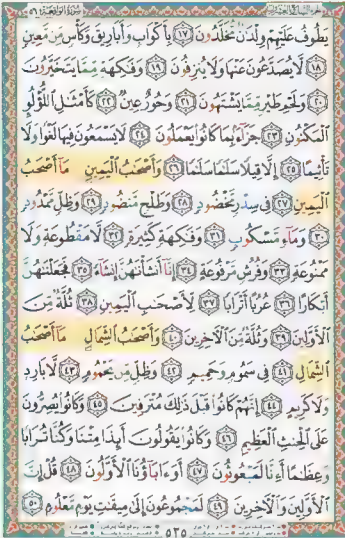 سورة الواقعة ٥٦
يَطُوفُ عَلَيْهِمْ وِلْدَٰنٌ مُّخَلَّدُونَ ١٧ بِأَكْوَابٍ وَأَبَارِيقَ وَكَأْسٍ مِّن مَّعِينٍ
١٨ لَّا يُصَدَّعُونَ عَنْهَا وَلَا يُنزِفُونَ ١٩ وَفَٰكِهَةٍ مِّمَّا يَتَخَيَّرُونَ
٢٠ وَلَحْمِ طَيْرٍ مِّمَّا يَشْتَهُونَ ٢١ وَحُورٌ عِينٌ ٢٢ كَأَمْثَٰلِ اللُّؤْلُؤِ
الْمَكْنُونِ ٢٣ جَزَاءً بِمَا كَانُوا يَعْمَلُونَ ٢٤ لَا يَسْمَعُونَ فِيهَا لَغْوًا وَلَا
تَأْثِيمًا ٢٥ إِلَّا قِيلًا سَلَٰمًا سَلَٰمًا ٢٦ وَأَصْحَٰبُ الْيَمِينِ مَا أَصْحَٰبُ
الْيَمِينِ ٢٧ فِي سِدْرٍ مَّخْضُودٍ ٢٨ وَطَلْحٍ مَّنضُودٍ ٢٩ وَظِلٍّ مَّمْدُودٍ
٣٠ وَمَاءٍ مَّسْكُوبٍ ٣١ وَفَٰكِهَةٍ كَثِيرَةٍ ٣٢ لَّا مَقْطُوعَةٍ وَلَا
مَمْنُوعَةٍ ٣٣ وَفُرُشٍ مَّرْفُوعَةٍ ٣٤ إِنَّا أَنشَأْنَٰهُنَّ إِنشَاءً ٣٥ فَجَعَلْنَٰهُنَّ
أَبْكَارًا ٣٦ عُرُبًا أَتْرَابًا ٣٧ لِّأَصْحَٰبِ الْيَمِينِ ٣٨ ثُلَّةٌ مِّنَ
الْأَوَّلِينَ ٣٩ وَثُلَّةٌ مِّنَ الْآخِرِينَ ٤٠ وَأَصْحَٰبُ الشِّمَالِ مَا أَصْحَٰبُ
الشِّمَالِ ٤١ فِي سَمُومٍ وَحَمِيمٍ ٤٢ وَظِلٍّ مِّن يَحْمُومٍ ٤٣ لَّا بَارِدٍ
وَلَا كَرِيمٍ ٤٤ إِنَّهُمْ كَانُوا قَبْلَ ذَٰلِكَ مُتْرَفِينَ ٤٥ وَكَانُوا يُصِرُّونَ
عَلَى الْحِنثِ الْعَظِيمِ ٤٦ وَكَانُوا يَقُولُونَ أَئِذَا مِتْنَا وَكُنَّا تُرَابًا
وَعِظَٰمًا أَءِنَّا لَمَبْعُوثُونَ ٤٧ أَوَءَابَاؤُنَا الْأَوَّلُونَ ٤٨ قُلْ إِنَّ
الْأَوَّلِينَ وَالْآخِرِينَ ٤٩ لَمَجْمُوعُونَ إِلَىٰ مِيقَٰتِ يَوْمٍ مَّعْلُومٍ ٥٠
٥٣٥